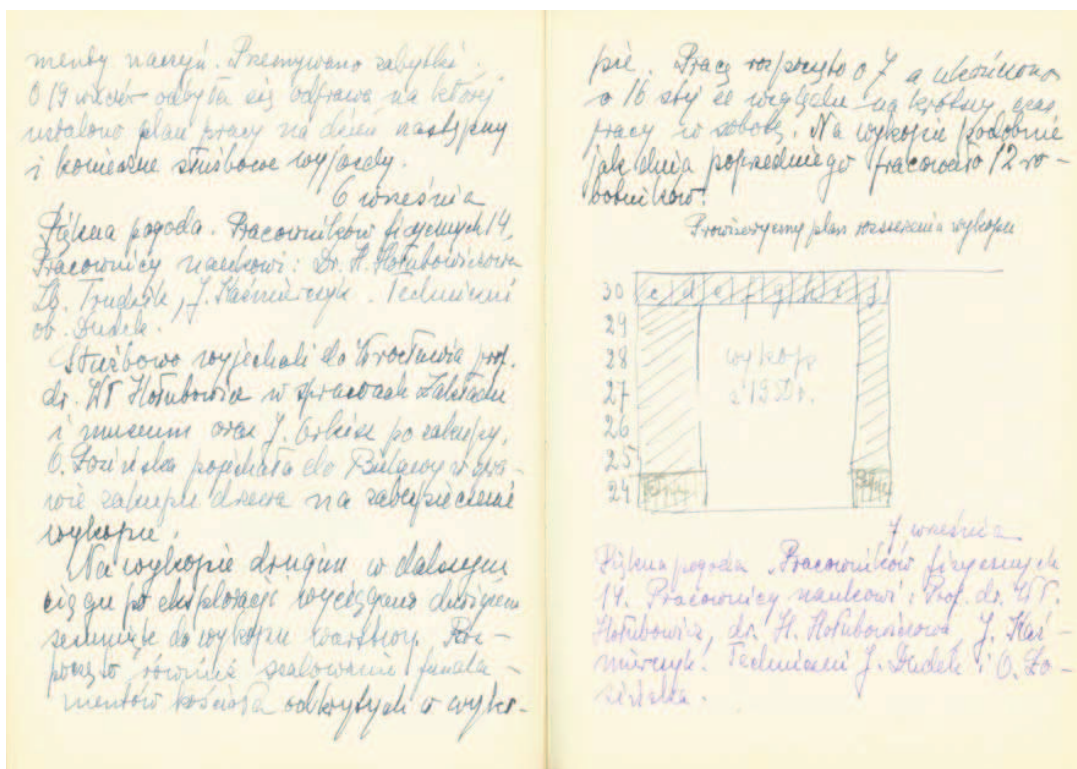 menty naczyń. Przemywano zabytki.
O 19 wieczór odbyła się odprawa na której
ustalono plan pracy na dzień następny
i konieczne służbowe wyjazdy.
6 września
Piękna pogoda. Pracowników fizycznych 14.
Pracownicy naukowi: Dr. H. Hołubowiczowa
Trudzik, J. Kaźmierczyk. Techniczni
ob. Dudek.
Służbowo wyjechali do Wrocławia prof.
dr. Wł Hołubowicz w sprawach Zakładu
i muzeum oraz J. po zakupy.
O. Łozińska pojechała do w spra-
wie zakupu drzewa na zabezpieczenie
wykopu.
Na wykopie drugim w dalszym
ciągu po eksploracji wyciągano dźwigiem
do wykopu warstwy. Roz-
poczęto również szalowanie funda-
mentów kościoła odkrytych w wyko-
pie. Pracę rozpoczęto o 7 a ukończono
o 16 ze względu na krótszy czas
pracy w sobotę. Na wykopie podobnie
jak dnia poprzedniego pracowało 12 ro-
botników.
Prowizoryczny plan rozszerzenia wykopu
30 c d e f g h i j
29
28 wykop
27 z 1950 r.
26
25
24
7 września
Piękna pogoda. Pracowników fizycznych
14. Pracownicy naukowi: Prof. dr. Wł.
Hołubowicz, dr. H. Hołubowiczowa J. Kaź-
mierczyk. Techniczni J. Dudek i O. Ło-
zińska.